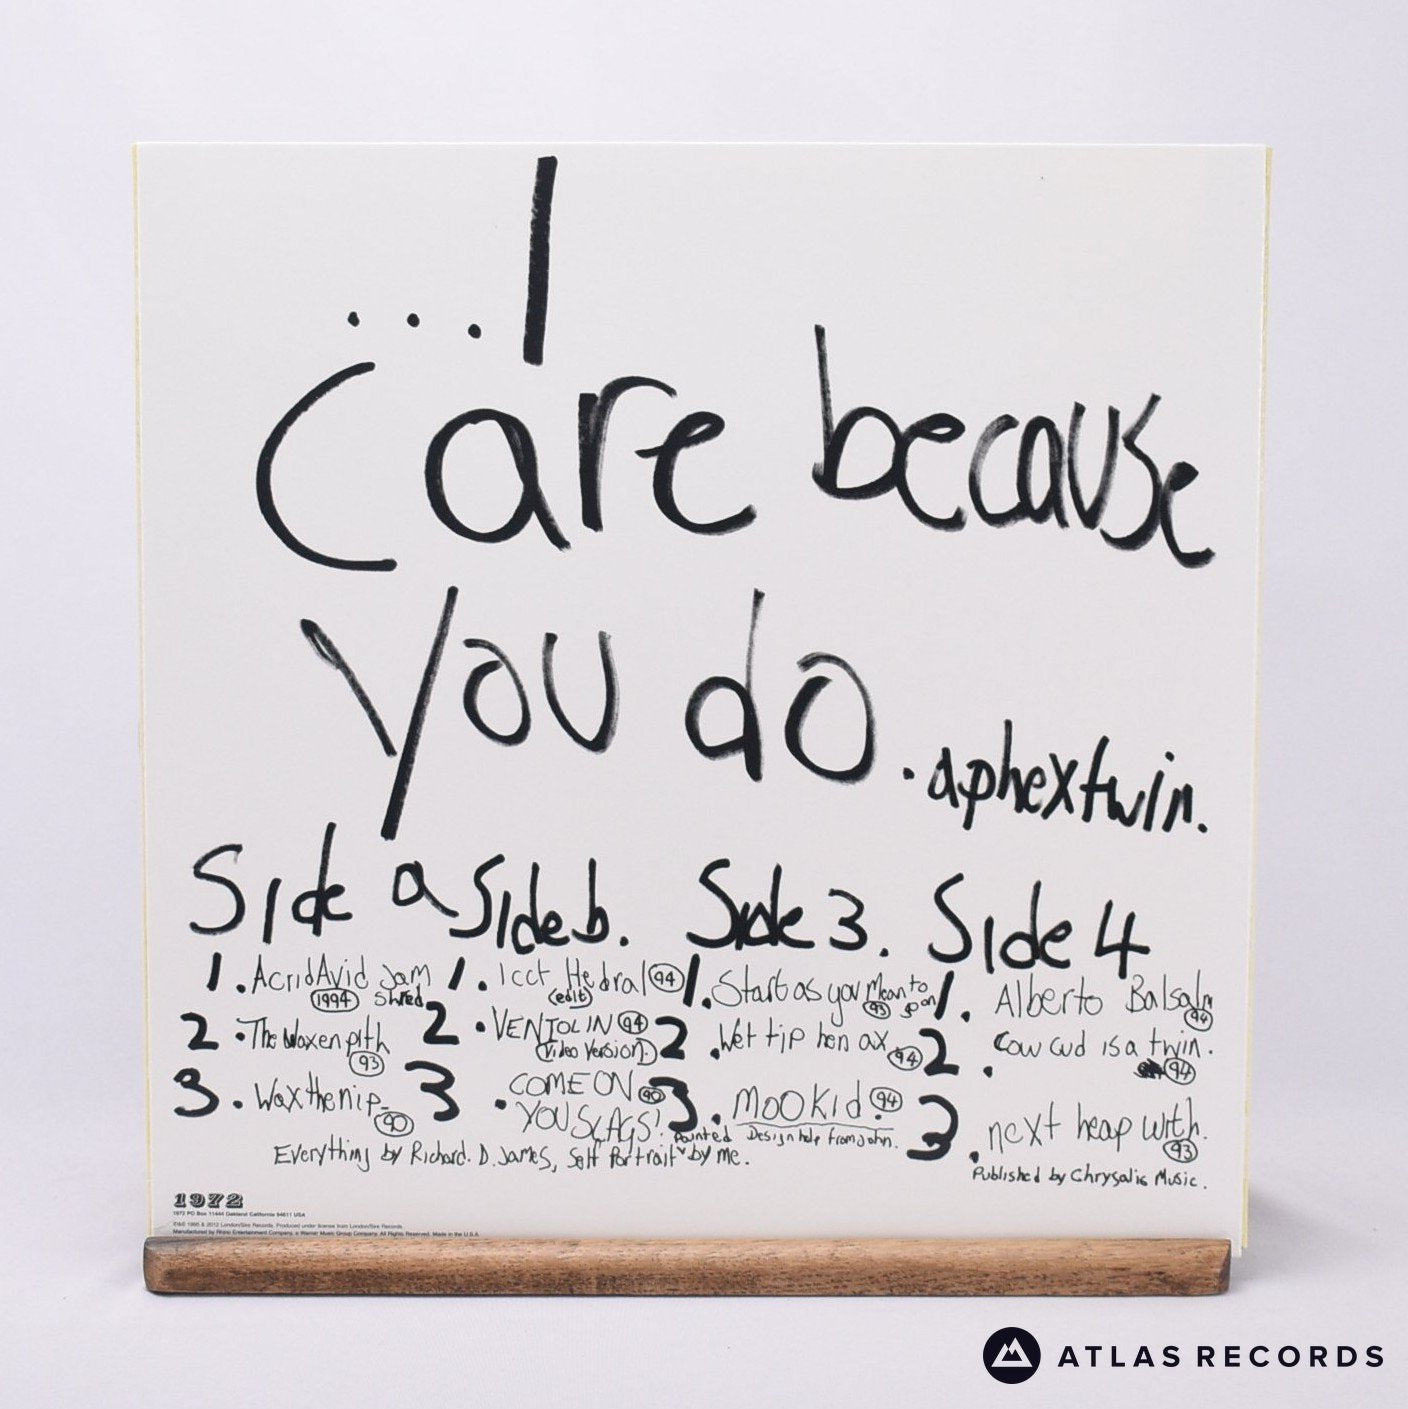 ...I
Care because
you do. aphextwin.
Side a
1. Acrid Avid Jam
1994 Shred
2. The Waxen pith
93
3. Wax the nip
90
Side b.
1. Icct Hedral 94
(edit)
2. VENTOLIN 94
(Video Version.)
3. COME ON 90
YOU SLAGS!
Side 3.
1. Start as you Mean to
93 go on
2. Wet tip hen ax 94
3. MOOKid. 94
Design help from John.
Side 4
1. Alberto Balsalm
94
2. Cow cud is a twin.
94
3. next heap with.
93
Everything by Richard. D. James, Self Portrait painted by me.
Published by Chrysalis Music.
1972
1972 PO Box 11444 Oakland California 94611 USA
℗© 1995 & 2012 London/Sire Records. Produced under license from London/Sire Records
Manufactured by Rhino Entertainment Company, a Warner Music Group Company. All Rights Reserved. Made in the U.S.A.
ATLAS RECORDS